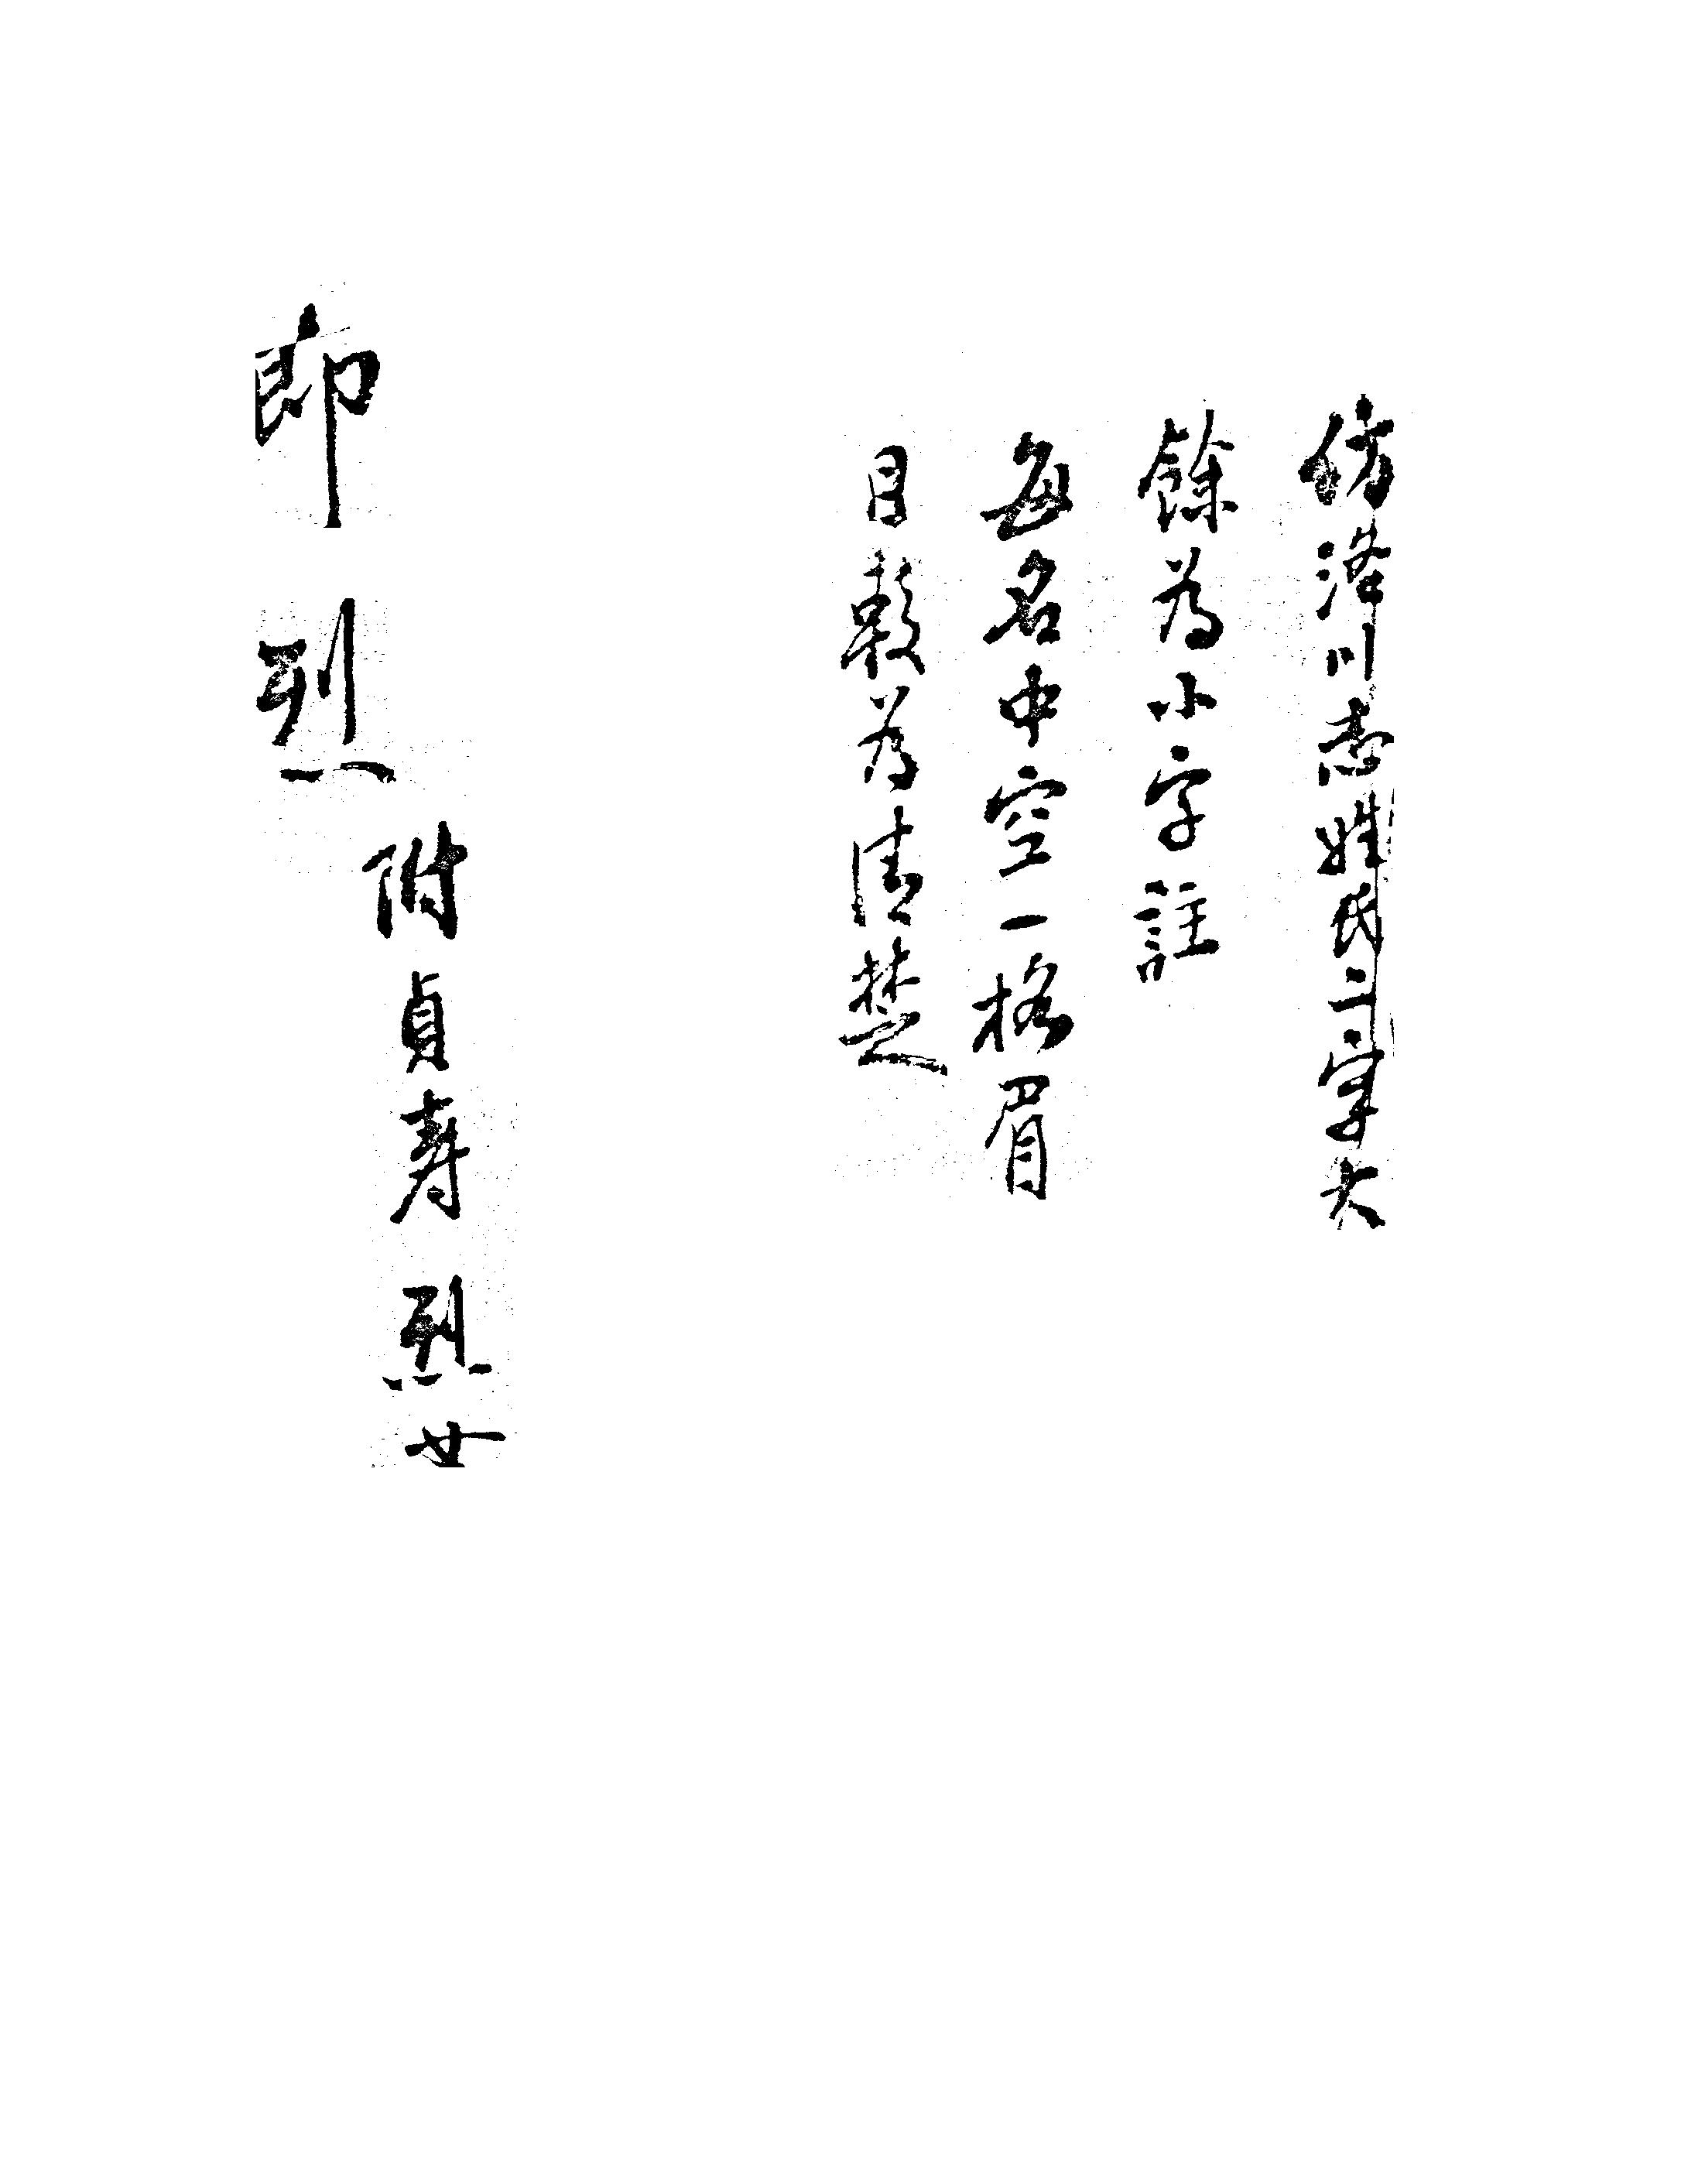 仿涇川志姓氏二字大
餘为小字註
每名中空一格眉
目較为清楚
節 烈
附貞壽 烈女